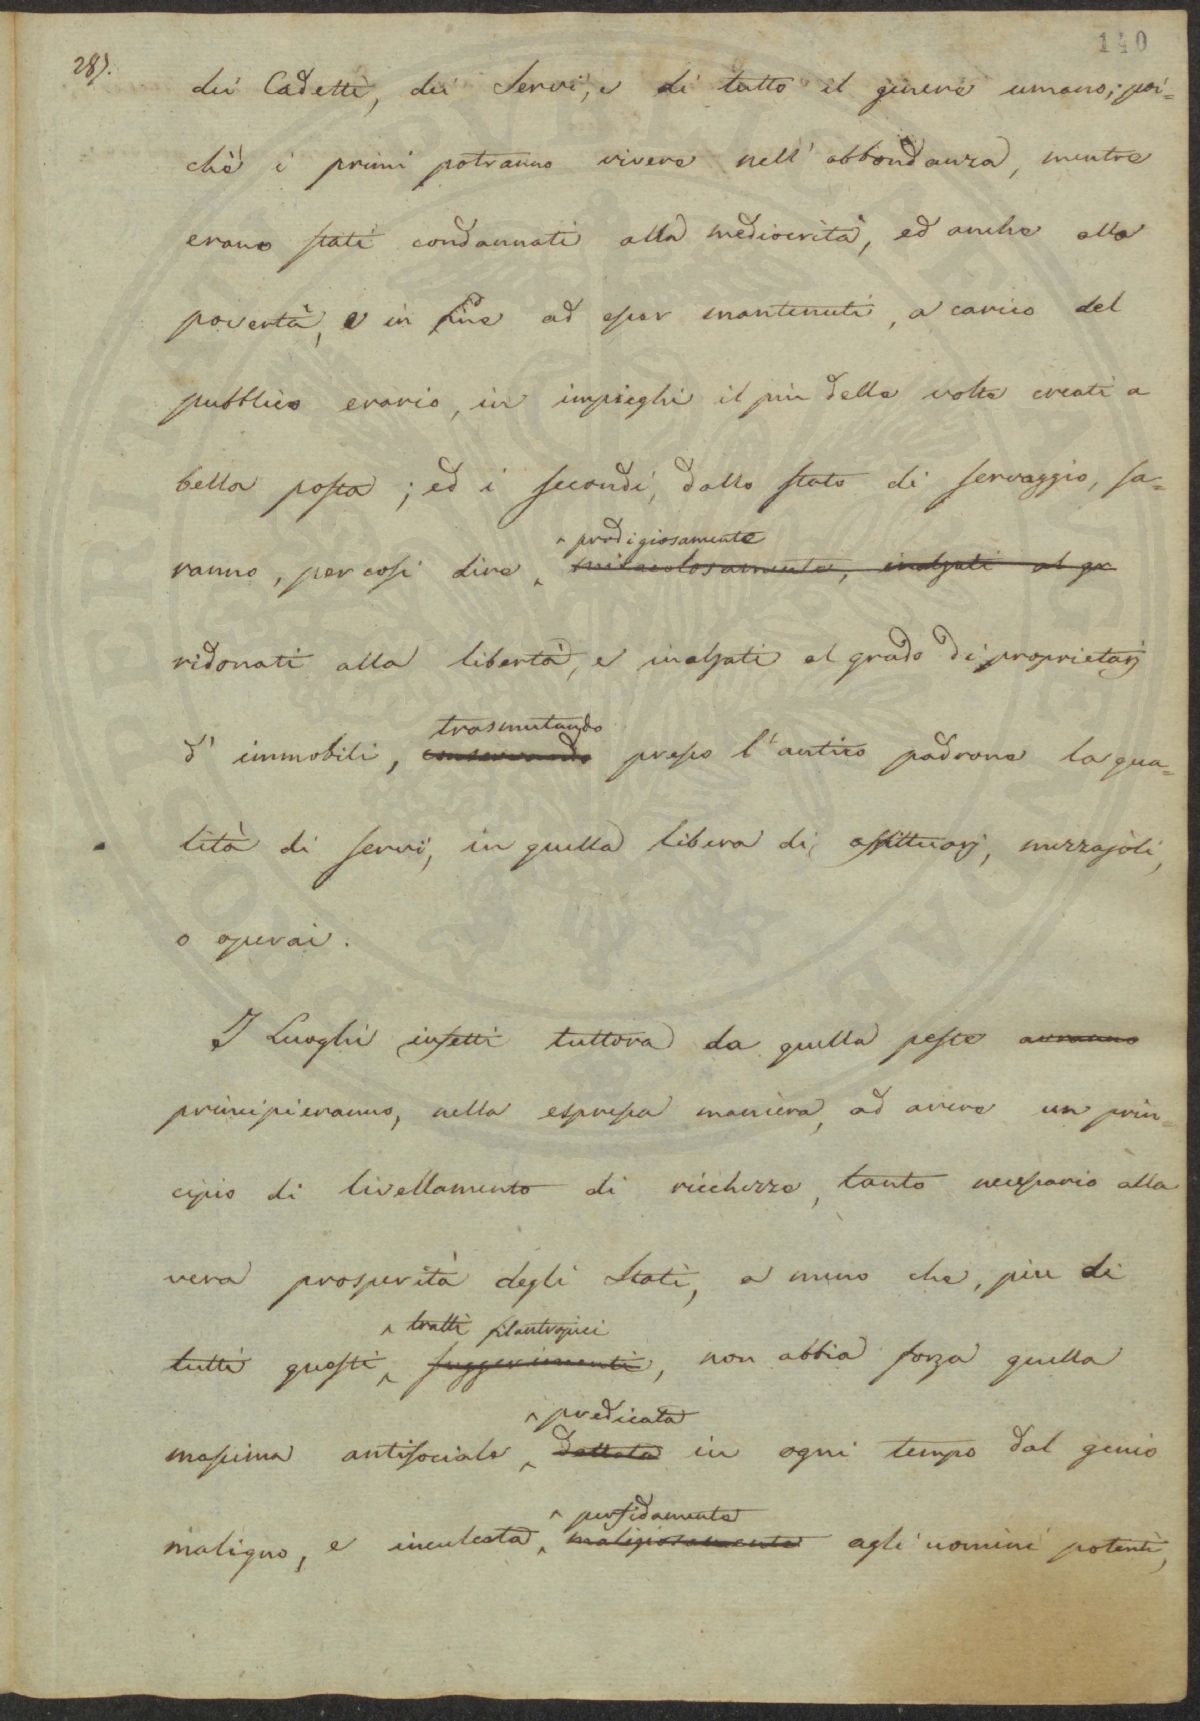 140
287.
dei Cadetti, dei Servi, e di tutto il genere umano; poi=
chè i primi potranno vivere nell'abbondanza, mentre
erano stati condannati alla mediocrità, ed anche alla
povertà, e in fine ad esser mantenuti, a carico del
pubblico erario, in impieghi il più delle volte creati a
bella posta; ed i secondi, dallo stato di servaggio, sa=
prodigiosamente
ranno, per così dire, miracolosamente, inalzati al gr
ridonati alla libertà, e inalzati al grado di proprietarj
trasmutando
d'immobili, conservando presso l'antico padrone la qua=
lità di servi, in quella libera di affittuarj, mezzajoli,
o operai.
I Luoghi infetti tuttora da quella peste avranno
principieranno, nella espressa maniera, ad avere un prin=
cipio di livellamento di ricchezze, tanto necessario alla
vera prosperità degli Stati, a meno che, più di
tratti filantropici
tutti questi suggerimenti, non abbia forza quella
predicata
massima antisociale, dettata in ogni tempo dal genio
perfidamente
maligno, e inculcata, maligiosamente agli uomini potenti,